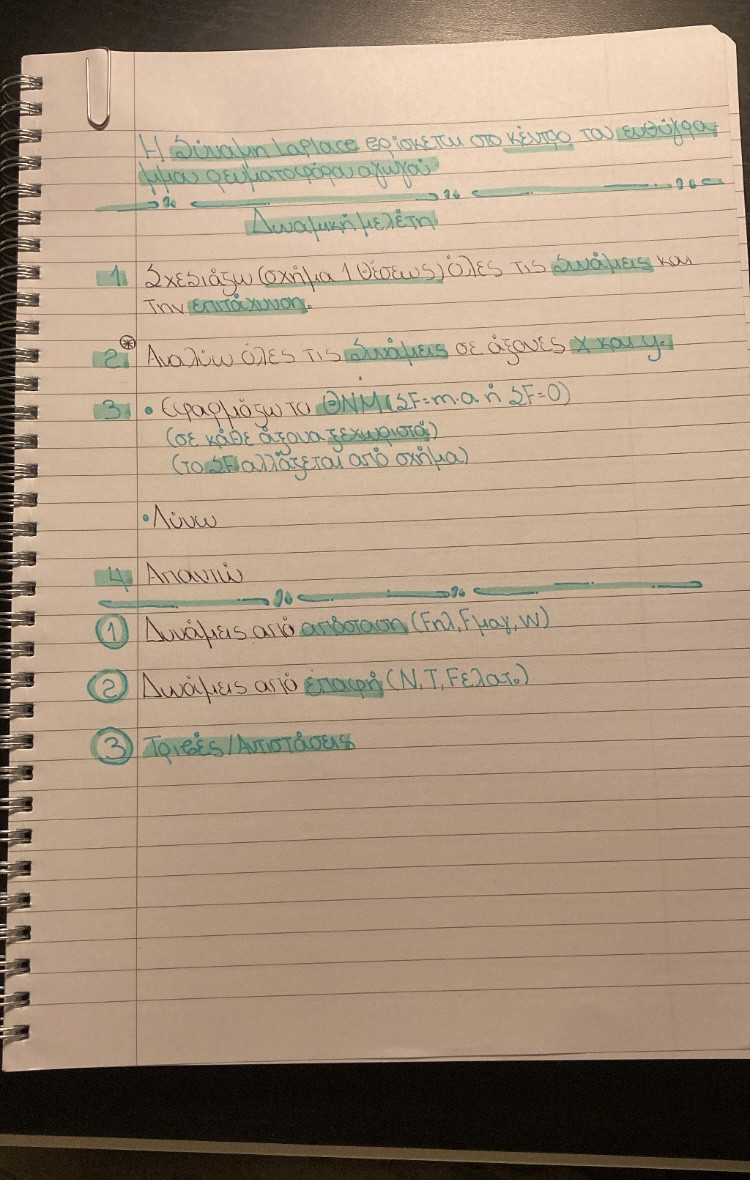 Η δύναμη Laplace βρίσκεται στο κέντρο του ευθύγρα-
μμου ρευματοφόρου αγωγού
Δυναμική μελέτη
1 Σχεδιάζω (σχήμα 1 θέσεως) όλες τις δυνάμεις και
την επιτάχυνση.
2* Αναλύω όλες τις δυνάμεις σε άξονες x και y.
3 • Εφαρμόζω το ΘΝΜ (ΣF=m·a ή ΣF=0)
(σε κάθε άξονα ξεχωριστά)
(το ΣF αλλάζεται από σχήμα)
• Λύνω
4 Απαντώ
1 Δυνάμεις από απόσταση (Fηλ, Fμαγ, W)
2 Δυνάμεις από επαφή (N, T, Fελατ.)
3 Τριβές/Αντιστάσεις